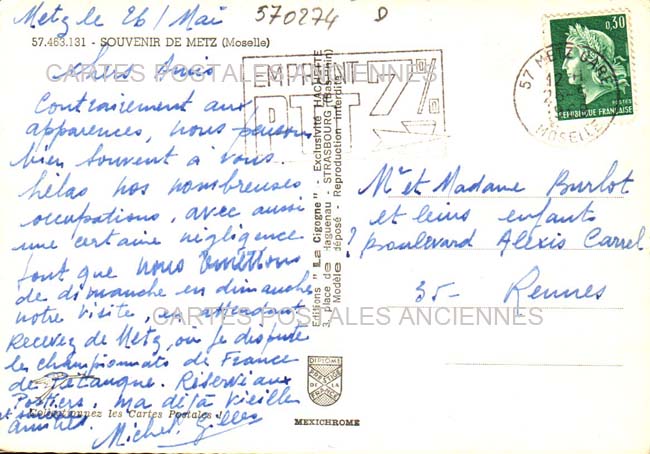 Metz le 26/Mai
570274 D
57.463.131 - SOUVENIR DE METZ (Moselle)
chers Amis
Contrairement aux
apparences, nous pensons
bien souvent à vous.
hélas nos nombreuses
occupations, avec aussi
une certaine négligence
font que nous
de dimanche en dimanche
notre visite, en attendant
recevez de Metz, où je dispute
les championnats de France
de Pétanque. Réservé aux
Postiers, ma déjà vieille
et amitiés.
Michel Gilles
Collectionnez les Cartes Postales !
EMPRUNT
PTT 7%
Editions "La Cigogne" - Exclusivité HACHETTE
3, place de Haguenau - STRASBOURG (Bas-Rhin)
Modèle déposé - Reproduction interdite
57 METZ GARE
MOSELLE
0,30
POSTES
REPUBLIQUE FRANÇAISE
Mr et Madame Burlot
et leurs enfants
? boulevard Alexis Carrel
35- Rennes
DIPLOME
PRESTIGE
DE LA
FRANCE
MEXICHROME
CARTES POSTALES ANCIENNES
CARTES POSTALES ANCIENNES